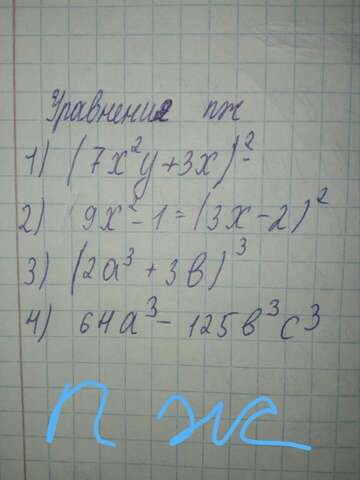 Уравнения пж
1) (7x²y+3x)²-
2) 9x²-1=(3x-2)²
3) (2a³+3в)³
4) 64a³-125в³c³
п жс